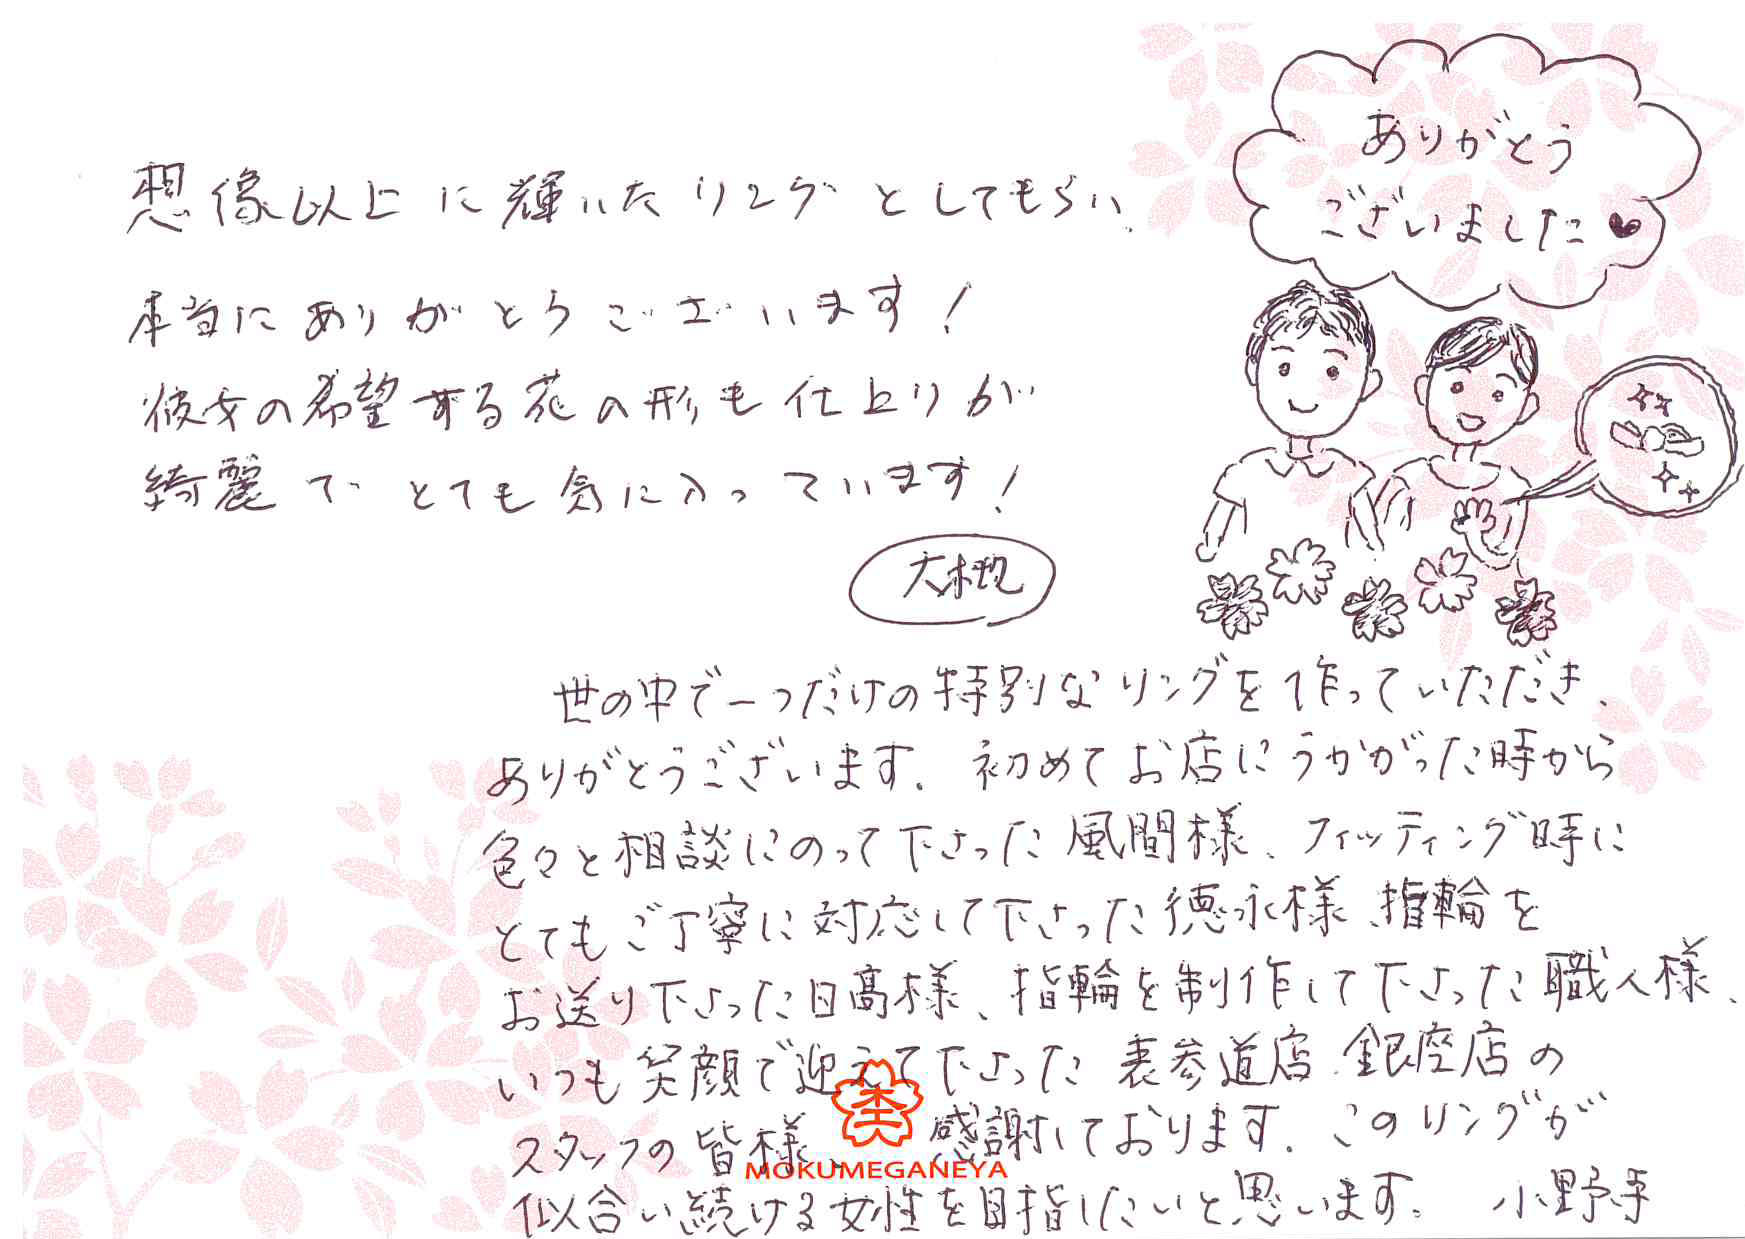 ありがとう
ございました
想像以上に輝いたリングとしてもらい、
本当にありがとうございます！
彼女の希望する花の形も仕上りが
綺麗で とても気に入っています！
大槻
世の中で一つだけの特別なリングを作っていただき、
ありがとうございます。初めてお店にうかがった時から
色々と相談にのって下さった風間様、フィッティング時に
とてもご丁寧に対応して下さった徳永様、指輪を
お送り下さった日髙様、指輪を制作して下さった職人様、
いつも笑顔で迎えて下さった表参道店 銀座店の
スタッフの皆様、感謝しております。このリングが
似合い続ける女性を目指したいと思います。 小野寺
MOKUMEGANEYA